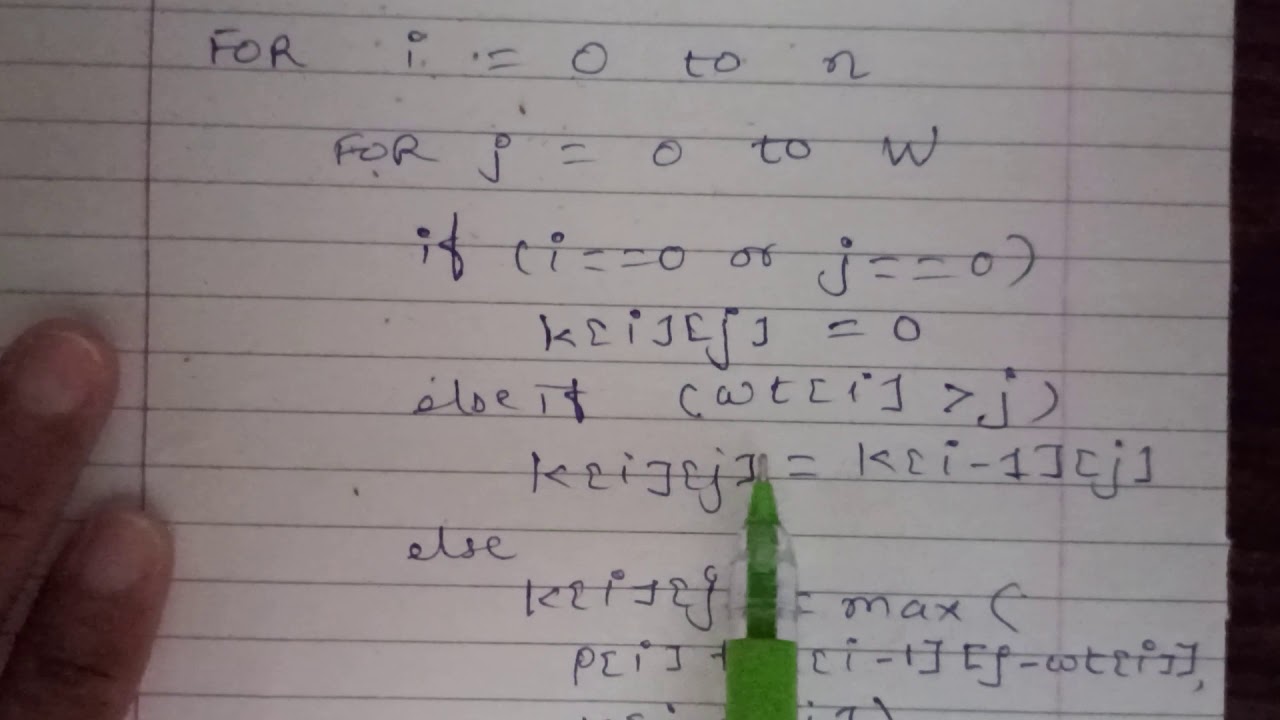 FOR i := 0 to n
FOR j = 0 to W
if (i==0 or j==0)
K[i][j] = 0
else if (wt[i] >j)
K[i][j] = K[i-1][j]
else
K[i][j = max (
P[i] + [i-1][j-wt[i]],